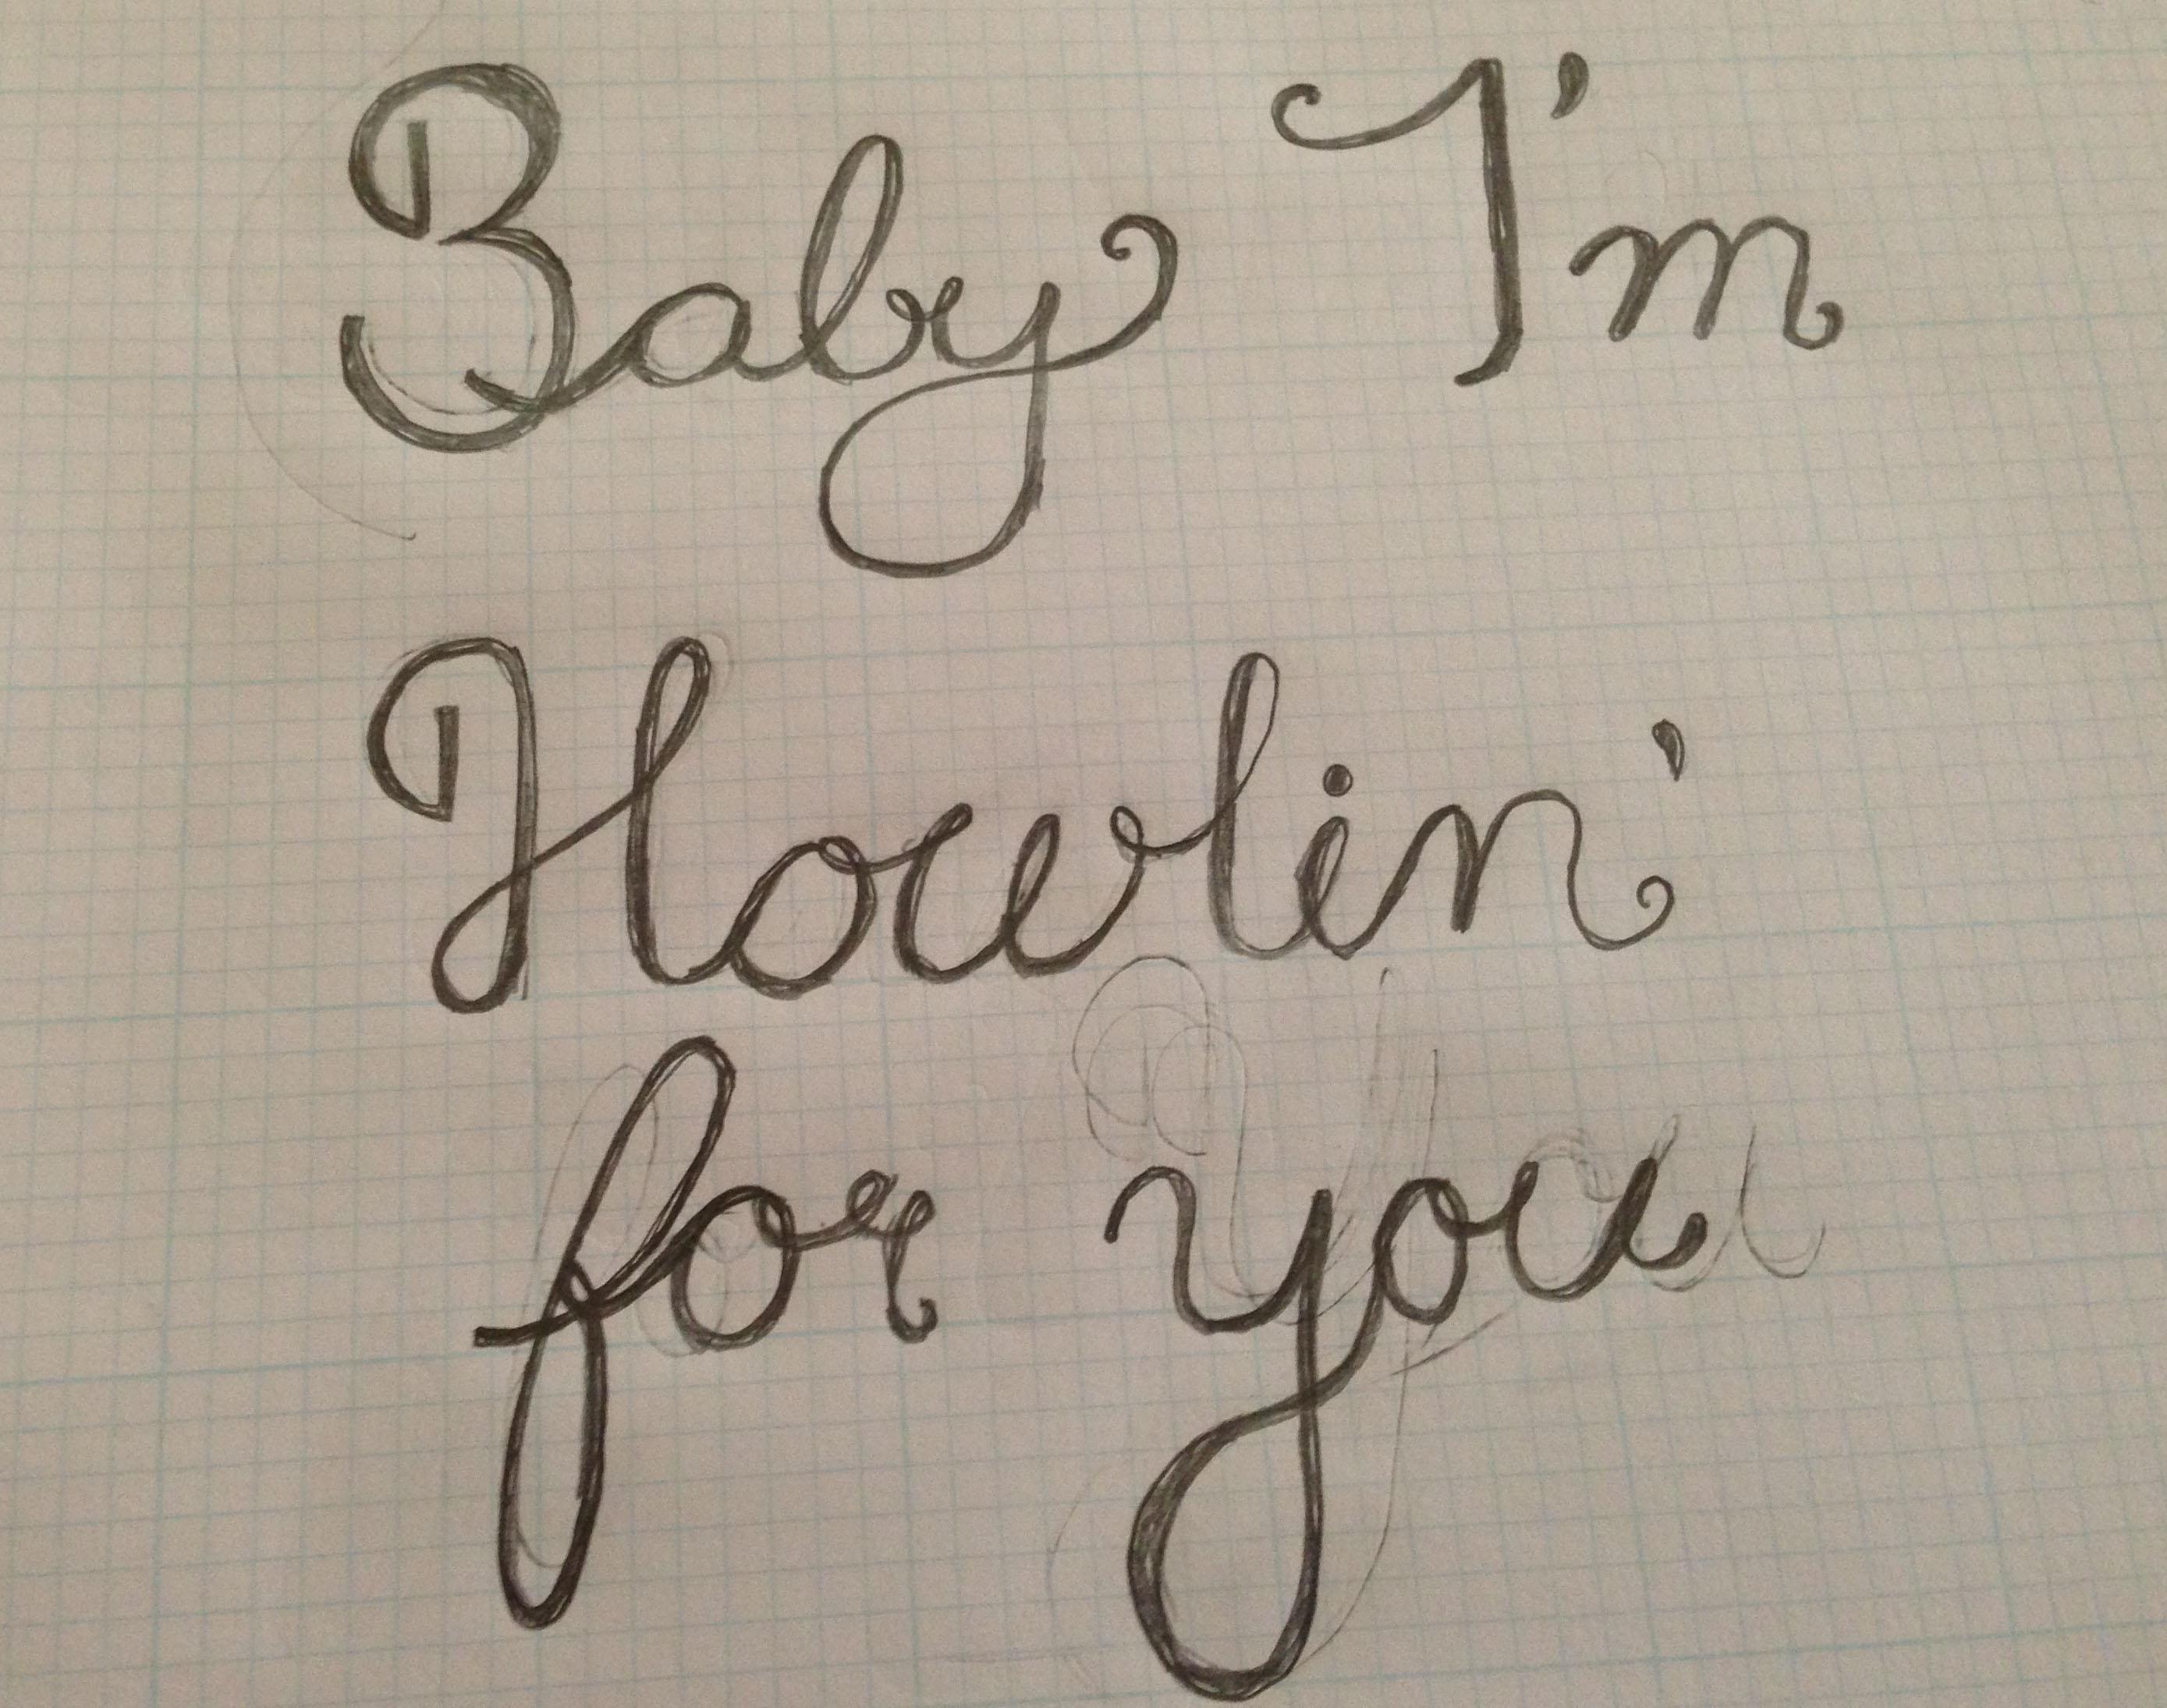 Baby I'm
Howlin'
for you